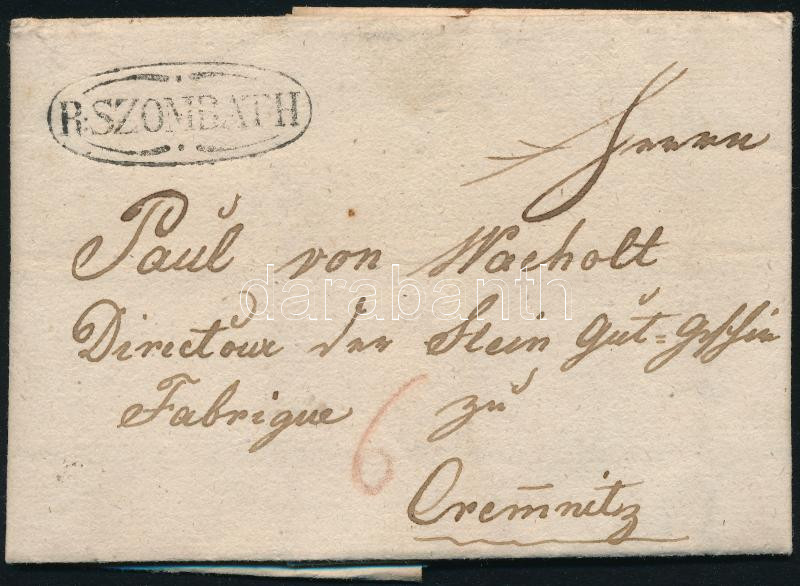 R:SZOMBATH
Herrn
Paul von Wacholt
darabanth
Directour der Stein Gut=
Fabrique zu
6
Cremnitz